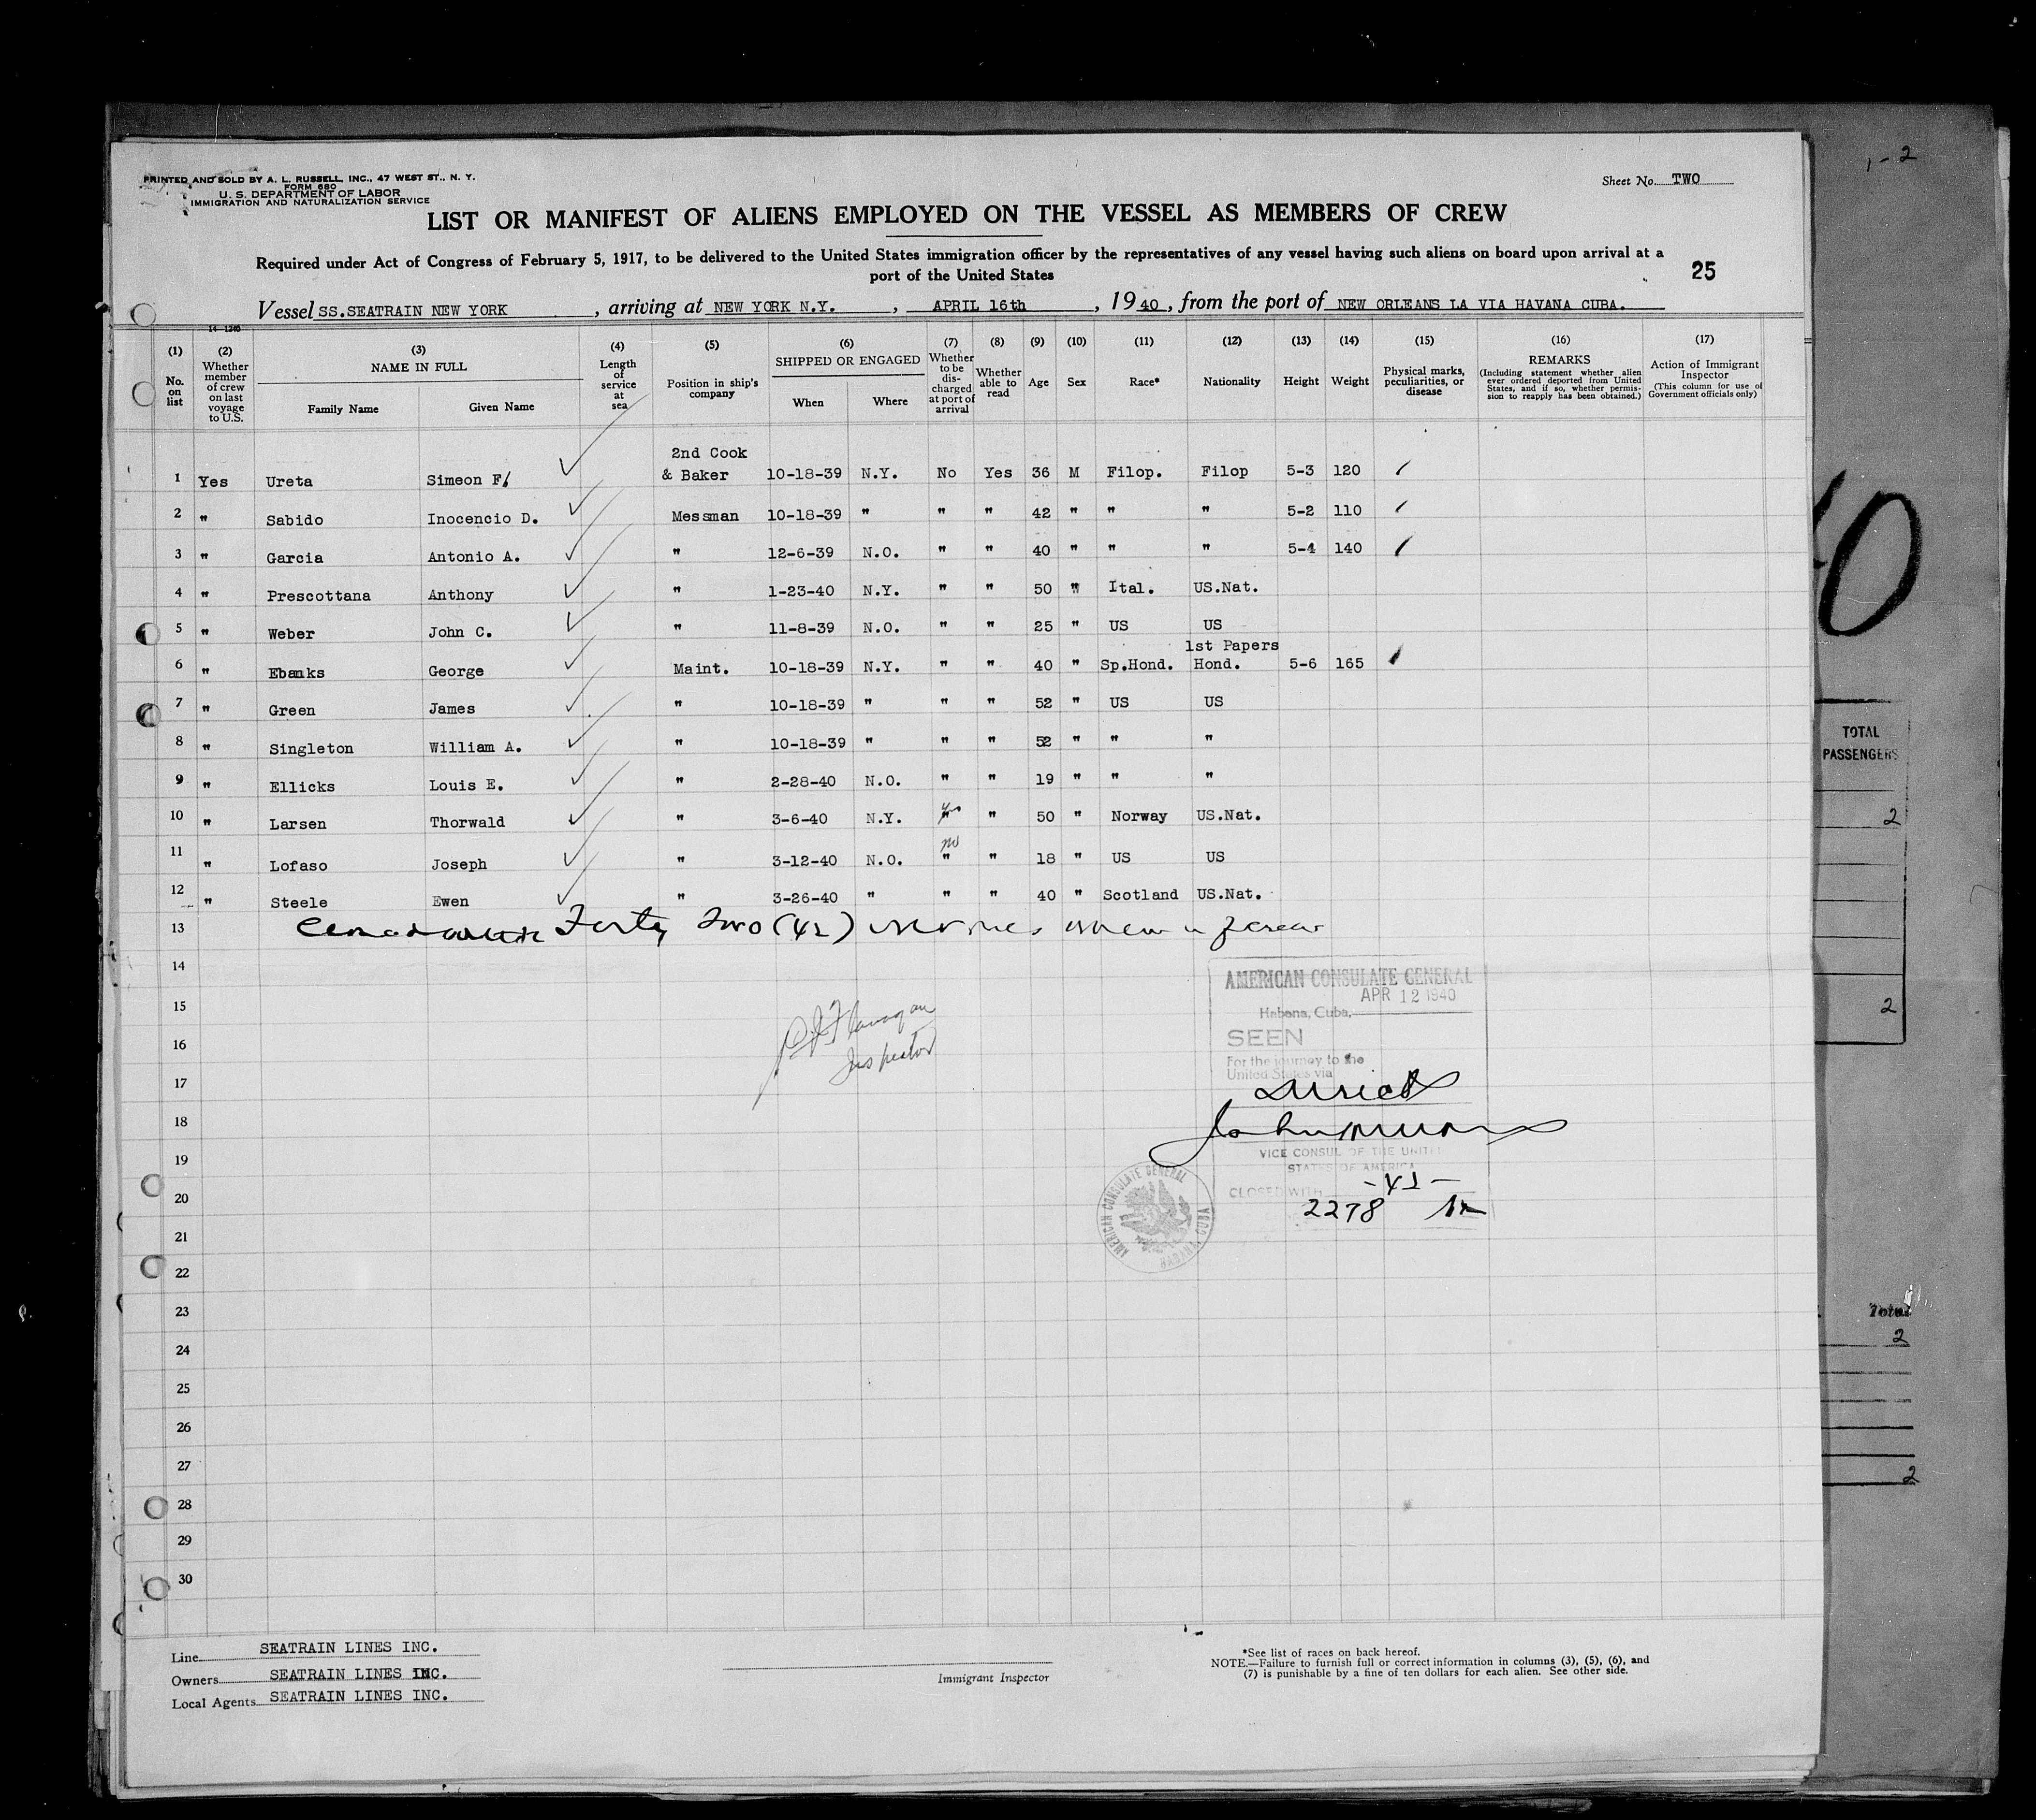 1-2
PRINTED AND SOLD BY A. L. RUSSELL, INC., 47 WEST ST., N. Y.
FORM 680
U. S. DEPARTMENT OF LABOR
IMMIGRATION AND NATURALIZATION SERVICE
Sheet No. TWO
LIST OR MANIFEST OF ALIENS EMPLOYED ON THE VESSEL AS MEMBERS OF CREW
Required under Act of Congress of February 5, 1917, to be delivered to the United States immigration officer by the representatives of any vessel having such aliens on board upon arrival at a
port of the United States
25
Vessel SS.SEATRAIN NEW YORK , arriving at NEW YORK N.Y. , APRIL 16th , 1940 , from the port of NEW ORLEANS LA VIA HAVANA CUBA.
14-1240
(1) No. on list
(2) Whether member of crew on last voyage to U.S.
(3) NAME IN FULL Family Name Given Name
(4) Length of service at sea
(5) Position in ship's company
(6) SHIPPED OR ENGAGED When Where
(7) Whether to be discharged at port of arrival
(8) Whether able to read
(9) Age
(10) Sex
(11) Race*
(12) Nationality
(13) Height
(14) Weight
(15) Physical marks, peculiarities, or disease
(16) REMARKS (Including statement whether alien ever ordered deported from United States, and if so, whether permission to reapply has been obtained.)
(17) Action of Immigrant Inspector (This column for use of Government officials only)
1 Yes Ureta Simeon F. 2nd Cook & Baker 10-18-39 N.Y. No Yes 36 M Filop. Filop 5-3 120
2 " Sabido Inocencio D. Messman 10-18-39 " " " 42 " " " 5-2 110
3 " Garcia Antonio A. " 12-6-39 N.O. " " 40 " " " 5-4 140
4 " Prescottana Anthony " 1-23-40 N.Y. " " 50 " Ital. US.Nat.
5 " Weber John C. " 11-8-39 N.O. " " 25 " US US
6 " Ebanks George Maint. 10-18-39 N.Y. " " 40 " Sp.Hond. 1st Papers Hond. 5-6 165
7 " Green James " 10-18-39 " " " 52 " US US
8 " Singleton William A. " 10-18-39 " " " 52 " " "
9 " Ellicks Louis E. " 2-28-40 N.O. " " 19 " " "
10 " Larsen Thorwald " 3-6-40 N.Y. yes " 50 " Norway US.Nat.
11 " Lofaso Joseph " 3-12-40 N.O. no " " 18 " US US
12 " Steele Ewen " 3-26-40 " " " 40 " Scotland US.Nat.
13 Forty Two (42)
14
15
16
17
18
19
20
21
22
23
24
25
26
27
28
29
30
Flanagan
Inspector
AMERICAN CONSULATE GENERAL
APR 12 1940
Habana, Cuba,
SEEN
For the journey to the
United States via
direct
John
VICE CONSUL OF THE UNITED
STATES OF AMERICA
CLOSED WITH -42-
2278
AMERICAN CONSULATE GENERAL HABANA, CUBA
Line SEATRAIN LINES INC.
Owners SEATRAIN LINES INC.
Local Agents SEATRAIN LINES INC.
Immigrant Inspector
*See list of races on back hereof.
NOTE.—Failure to furnish full or correct information in columns (3), (5), (6), and
(7) is punishable by a fine of ten dollars for each alien. See other side.
40
TOTAL
PASSENGERS
2
2
Total
2
2